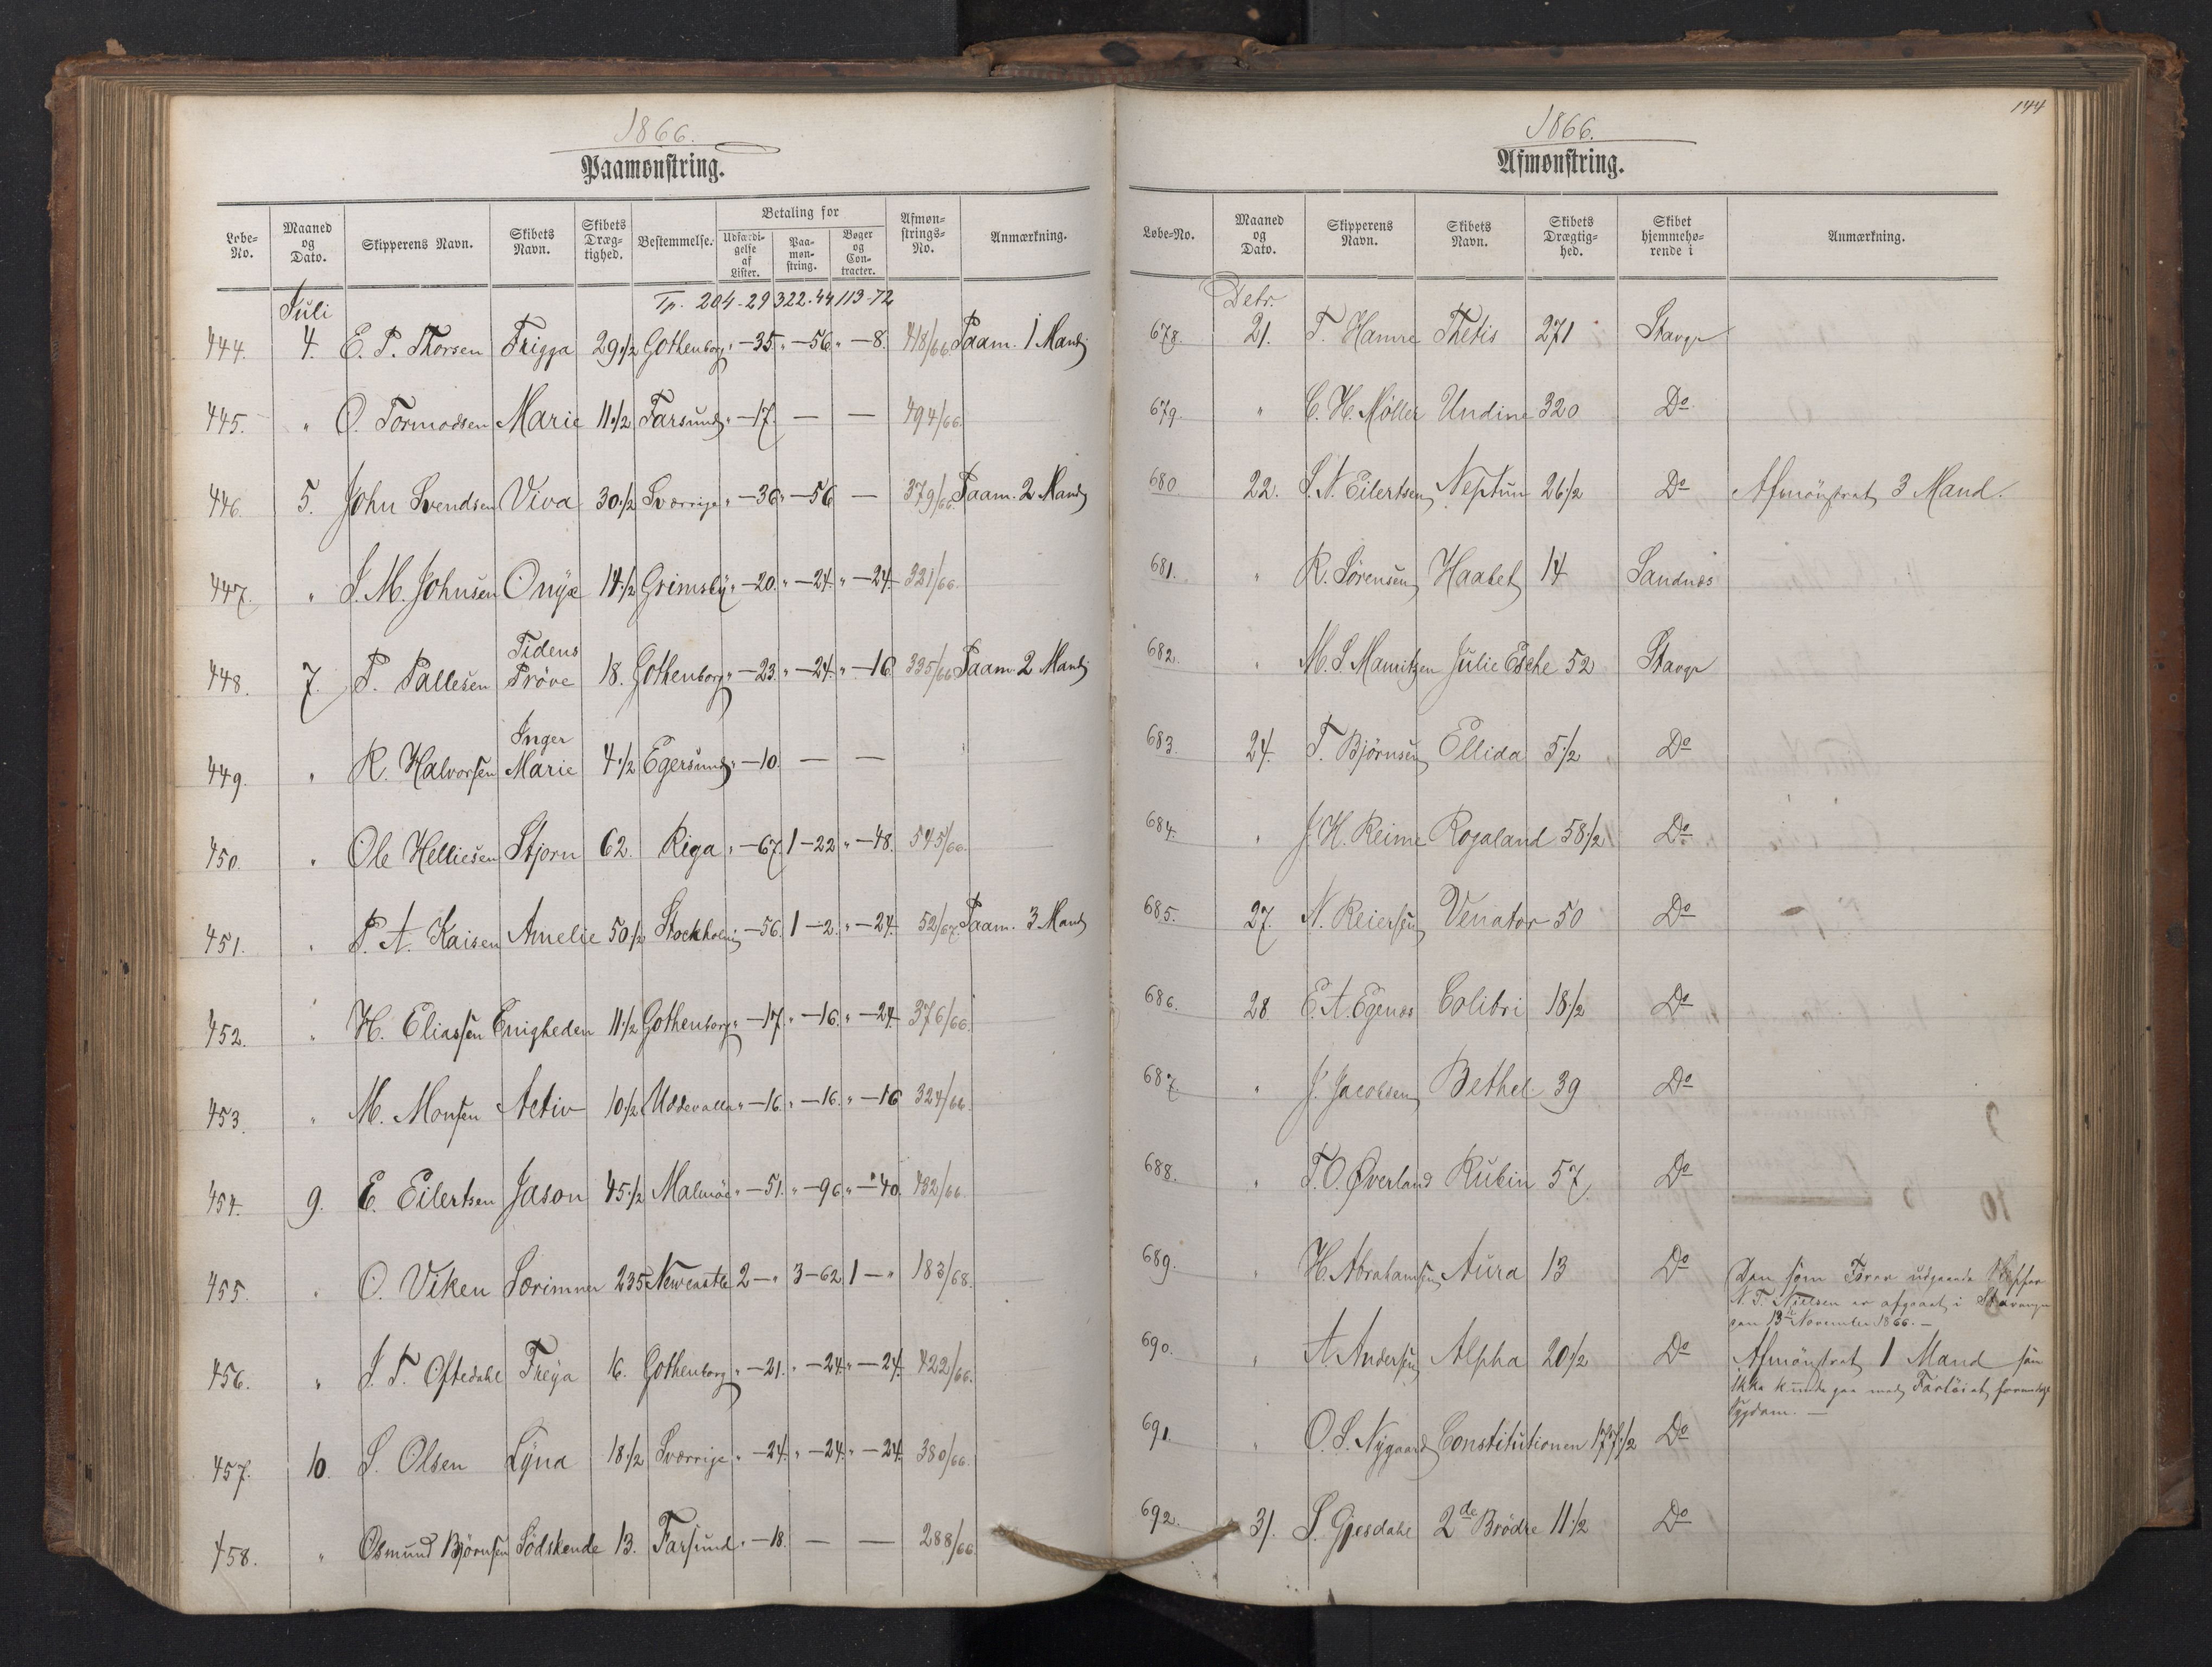 1866.
Paamønstring.
Løbe-No. Maaned og Dato. Skipperens Navn. Skibets Navn. Skibets Dræg-tighed. Bestemmelse. Betaling for Udfærdi-gelse af Lister. Paa-møn-string. Bøger og Con-tracter. Afmøn-strings-No. Anmærkning.
Juli Tp. 204-29 322-44 113-72
444. 4. E. P. Thorsen Frigga 29 1/2 Gothenborg " -35. " -56. " -8. 418/66. Paam. 1 Mand
445. " O. Tormodsen Marie 11 1/2 Farsund " -17. — — 494/66.
446. 5. John Svendsen Viva 30 1/2 Sverrige " -36 " -56 — 379/66. Paam. 2 Mand
447. " J. M. Johnsen Onyx 14 1/2 Grimsby " -20. " -24. " -24. 321/66.
448. 7. P. Pallesen Tidens Prøve 18. Gothenborg " -23. " -24. " -16 335/66 Paam. 2 Mand
449. " R. Halvorsen Inger Marie 4 1/2 Egersund " -10. — —
450. " Ole Helliesen Stjorn 62. Riga " -67. 1-22 " -48. 545/66.
451. " P. A. Kaisen Amelie 50 1/2 Stockholm " -56. 1-2. " -24. 52/67. Paam. 3 Mand
452. " H. Eliassen Enigheden 11 1/2 Gothenborg " -17. " -16. " -24. 376/66.
453. " M. Monsen Activ 10 1/2 Uddevalla " -16. " -16. " -16 324/66.
454. 9. E. Eilertsen Jason 45 1/2 Malmøe " -51. " -96. " -40. 482/66.
455. " O. Viken Særimner 235 Newcastle 2-" 3-62 1-" 183/68.
456. " J. T. Oftedahl Freya 16. Gothenborg " -21. " -24. " -24. 422/66.
457. 10. S. Olsen Lyna 18 1/2 Sverrige " -24. " -24. " -24. 380/66.
458. " Osmund Bjørnsen Sødskende 13. Farsund " -18. — — 288/66.
144
1866.
Afmønstring.
Løbe-No. Maaned og Dato. Skipperens Navn. Skibets Navn. Skibets Drægtig-hed. Skibet hjemmehø-rende i Anmærkning.
Debr.
678. 21. T. Hamre Thetis 271 Stavgr
679. " C. H. Møller Undine 320 Do
680 22. S. N. Eilertsen Neptun 26 1/2 Do Afmønstret 3 Mand.
681. " R. Sørensen Haabet 14 Sandnæs
682. " M. S. Mauritzen Julie Esche 52 Stavgr
683. 24. T. Bjørnsen Ellida 5 1/2 Do
684. " J. H. Reime Rogaland 58 1/2 Do
685. 27. N. Reiersen Venator 50 Do
686. 28 E. A. Egenæs Colibri 18 1/2 Do
687. " J. Jacobsen Bethel 39 Do
688. " T. O. Øverland Rubin 57. Do
689. " H. Abrahamsen Aura 13 Do Den som Fører udgaaede Skipper
N. T. Nielsen er afgaaet i Stavanger
den 13de November 1866. —
690. " A. Andersen Alpha 20 1/2 Do Afmønstret 1 Mand som
ikke kunde gaa med Fartøiet formedelst
Sygdom. —
691. " O. S. Nygaard Constitutionen 177 1/2 Do
692. 31. S. Gjesdahl 2de Brødre 11 1/2 Do